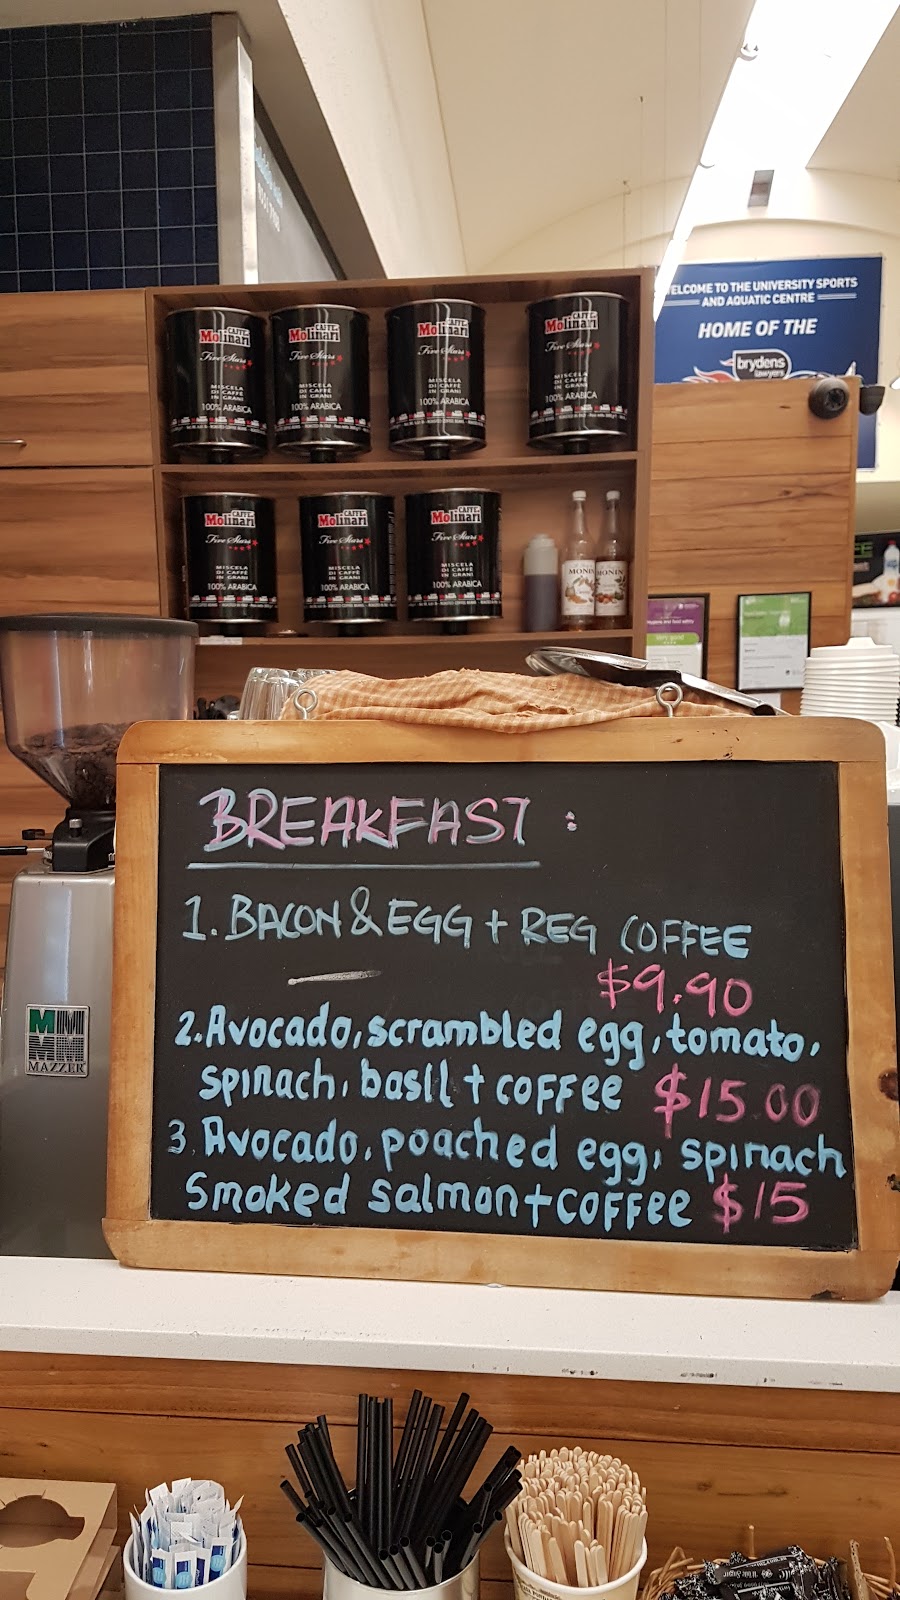 WELCOME TO THE UNIVERSITY SPORTS
AND AQUATIC CENTRE
HOME OF THE
brydens
lawyers
CAFFE
Molinari
Five Stars
MISCELA
DI CAFFÈ
IN GRANI
100% ARABICA
CAFFE
Molinari
Five Stars
MISCELA
DI CAFFÈ
IN GRANI
100% ARABICA
CAFFE
Molinari
Five Stars
MISCELA
DI CAFFÈ
IN GRANI
100% ARABICA
CAFFE
Molinari
Five Stars
MISCELA
DI CAFFÈ
IN GRANI
100% ARABICA
CAFFE
Molinari
Five Stars
MISCELA
DI CAFFÈ
IN GRANI
100% ARABICA
CAFFE
Molinari
Five Stars
MISCELA
DI CAFFÈ
IN GRANI
100% ARABICA
CAFFE
Molinari
Five Stars
MISCELA
DI CAFFÈ
IN GRANI
100% ARABICA
MONIN
MONIN
BREAKFAST :
1. BACON & EGG + REG COFFEE
$9.90
2. Avocado, scrambled egg, tomato,
spinach, basil + coffee $15.00
3. Avocado, poached egg, spinach
Smoked salmon + coffee $15
MAZZER